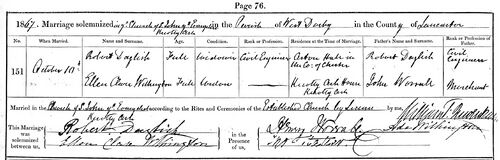 Page 76.
1867. Marriage solemnized in the Church of St John of Evangelist in the Parish of West Derby in the County of Lancaster
Knotty Ash
No. When Married. Name and Surname. Age. Condition. Rank or Profession. Residence at the Time of Marriage. Father's Name and Surname. Rank or Profession of Father.
151 October 10th Robert Daglish Full Widower Civil Engineer Aston Hall in the Co: of Chester Robert Daglish Civil Engineer
Ellen Clare Withington Full Widow Knotty Ash House Knotty Ash John Worrall Merchant
Married in the Church of St John of Evangelist according to the Rites and Ceremonies of the Established Church by License by me,
Knotty Ash
This Marriage was solemnized between us, Robert Daglish
Ellen Clare Withington
in the Presence of us, Henry Worrall
Ada Withington